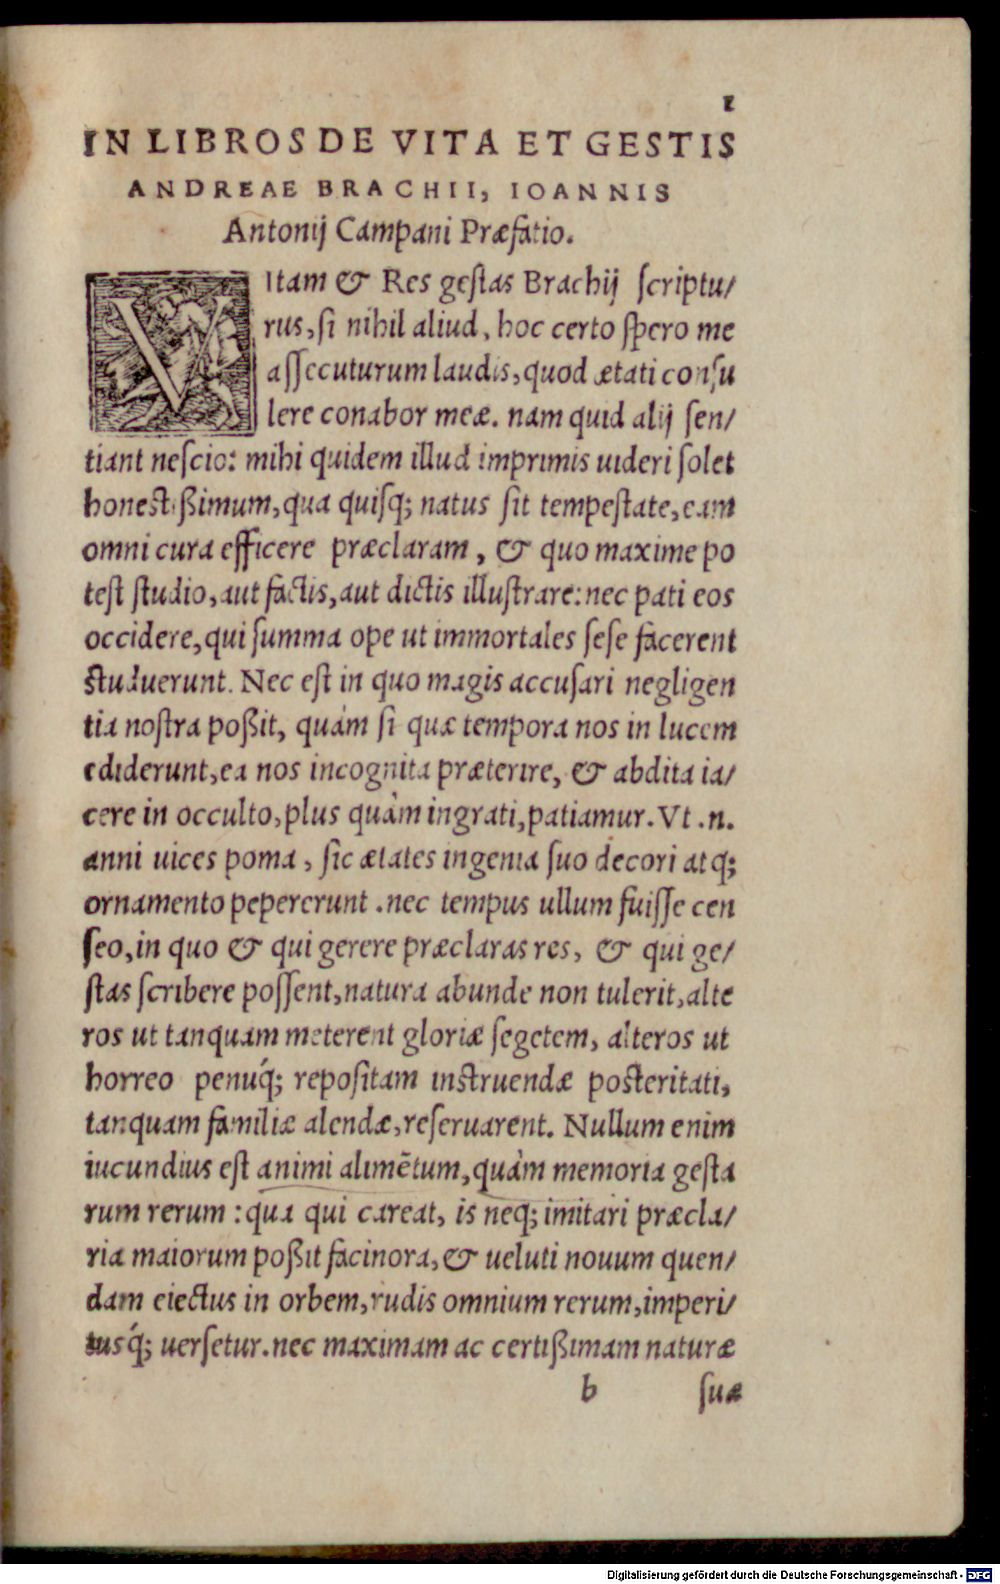 1
IN LIBROS DE VITA ET GESTIS
ANDREAE BRACHII, IOANNIS
Antonij Campani Præfatio.
VItam & Res gestas Brachij scriptu/
rus, si nihil aliud, hoc certo spero me
assecuturum laudis, quod ætati consu
lere conabor meæ. nam quid alij sen/
tiant nescio: mihi quidem illud imprimis uideri solet
honestißimum, qua quisq; natus sit tempestate, eam
omni cura efficere præclaram, & quo maxime po
test studio, aut factis, aut dictis illustrare: nec pati eos
occidere, qui summa ope ut immortales sese facerent
studuerunt. Nec est in quo magis accusari negligen
tia nostra poßit, quàm si quæ tempora nos in lucem
ediderunt, ea nos incognita præterire, & abdita ia/
cere in occulto, plus quàm ingrati, patiamur. Vt .n.
anni uices poma, sic ætates ingenia suo decori atq;
ornamento pepererunt. nec tempus ullum fuisse cen
seo, in quo & qui gerere præclaras res, & qui ge/
stas scribere possent, natura abunde non tulerit, alte
ros ut tanquam meterent gloriæ segetem, alteros ut
horreo penuq́; repositam instruendæ posteritati,
tanquam familiæ alendæ, reseruarent. Nullum enim
iucundius est animi alimẽtum, quàm memoria gesta
rum rerum: qua qui careat, is neq; imitari præcla/
ria maiorum poßit facinora, & ueluti nouum quen/
dam eiectus in orbem, rudis omnium rerum, imperi/
tusq́; uersetur. nec maximam ac certißimam naturæ
b suæ
Digitalisierung gefördert durch die Deutsche Forschungsgemeinschaft - DFG